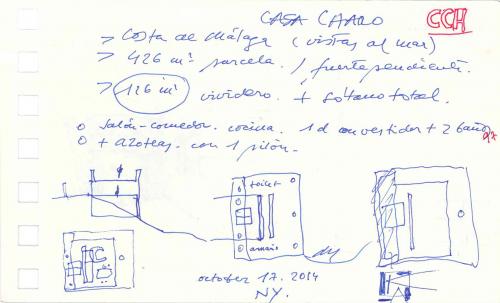 CASA CHARO
CCH
> Costa de Málaga (vistas al mar)
> 426 m² parcela. / fuerte pendiente.
> 126 m² vividero. + sótano total.
o salón-comedor. cocina. 1 d con vestidor + 2 baños
o + azotea. con 1 pilón.
toilet
armario
october 17. 2014
NY.